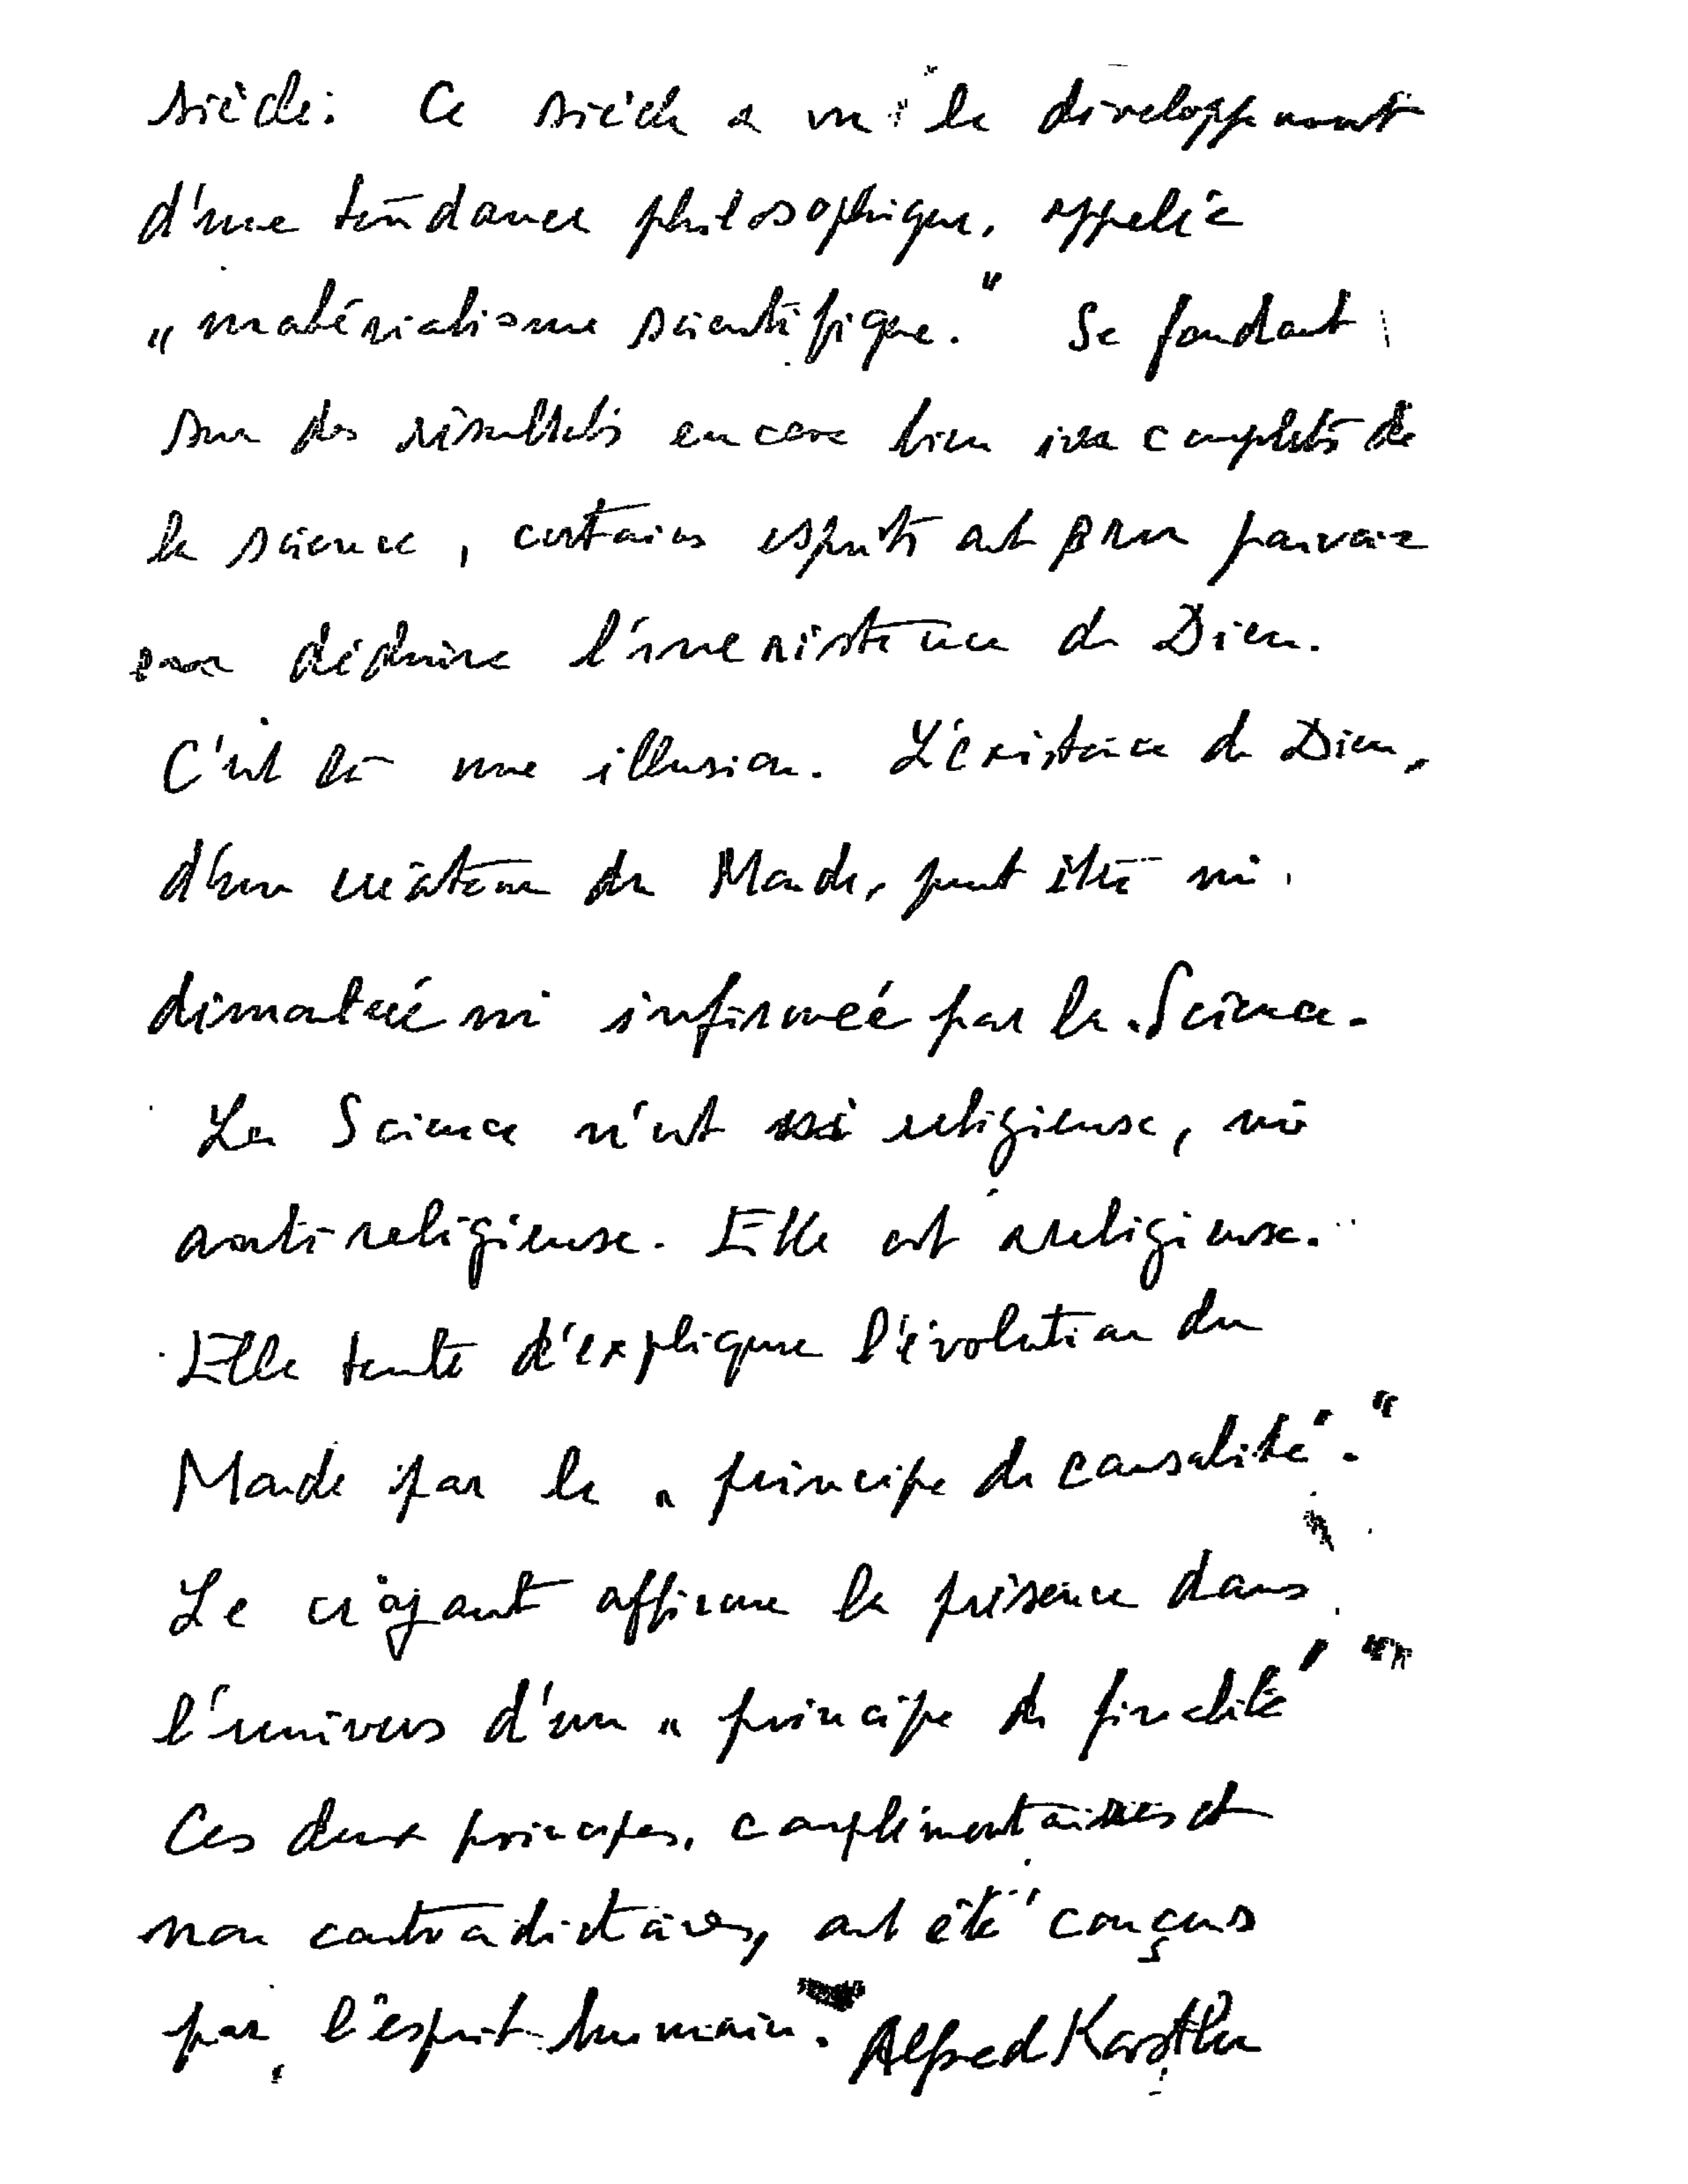 siècle. Ce siècle a vu le développement
d'une tendance philosophique, appelée
„matérialisme scientifique." Se fondant
sur des résultats encore bien incomplets de
la science, certains esprits ont cru pouvoir
déduire l'inexistence de Dieu.
C'est là une illusion. L'existence de Dieu,
d'un créateur du Monde, peut être ni
démontrée ni infirmée par la Science.
La Science n'est ni religieuse, ni
antireligieuse. Elle est areligieuse.
Elle tente d'expliquer l'évolution du
Monde par le „principe de causalité."
Le croyant affirme la présence dans
l'univers d'un „principe de finalité"
Ces deux principes, complémentaires et
non contradictoires, ont été conçus
par l'esprit humain. Alfred Kastler